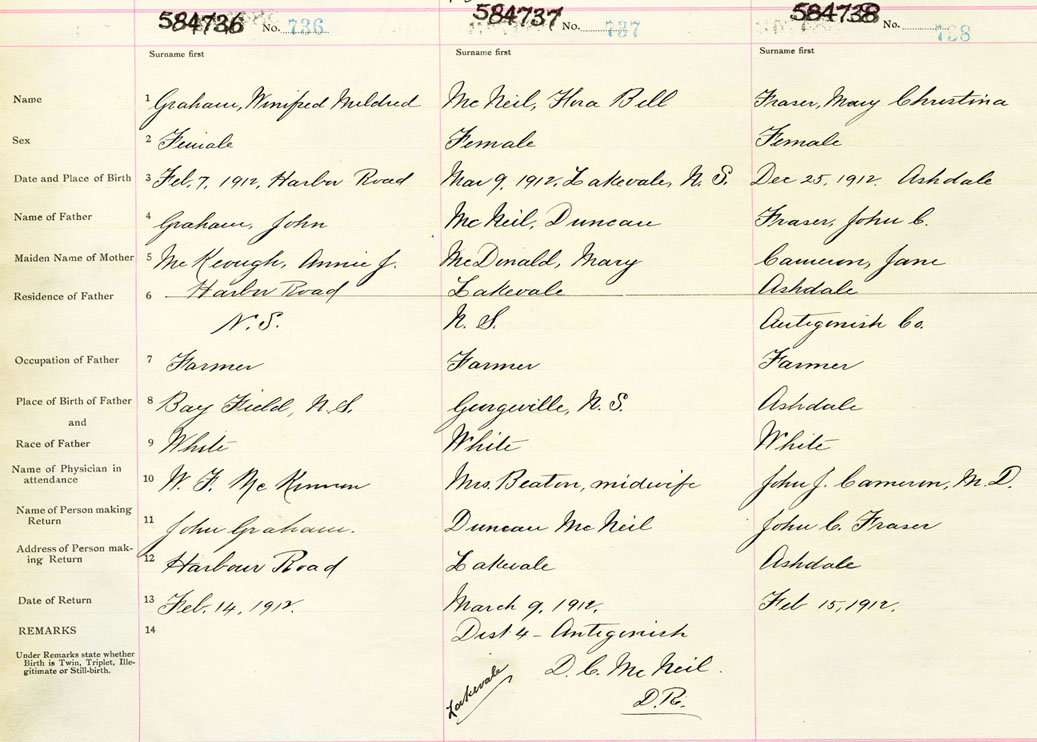 584736 No. 736 584737 No. 737 584738 No. 738
Surname first Surname first Surname first
Name 1 Graham, Winifred Mildred McNeil, Flora Bell Fraser, Mary Christina
Sex 2 Female Female Female
Date and Place of Birth 3 Feb. 7, 1912, Harbor Road Mar 9, 1912, Lakevale, N. S. Dec 25, 1912. Ashdale
Name of Father 4 Graham, John McNeil, Duncan Fraser, John C.
Maiden Name of Mother 5 McKeough, Annie J. McDonald, Mary Cameron, Jane
Residence of Father 6 Harbor Road Lakevale Ashdale
N.S. N. S. Antigonish Co.
Occupation of Father 7 Farmer Farmer Farmer
Place of Birth of Father 8 Bay Field, N.S. Georgeville, N. S. Ashdale
and
Race of Father 9 White White White
Name of Physician in
attendance 10 W. F. McKinnon Mrs. Beaton, midwife John J. Cameron, M.D.
Name of Person making
Return 11 John Graham. Duncan McNeil John C. Fraser
Address of Person mak-
ing Return 12 Harbour Road Lakevale Ashdale
Date of Return 13 Feb. 14, 1912. March 9, 1912. Feb 15, 1912.
REMARKS 14 Dist 4 - Antigonish
Under Remarks state whether
Birth is Twin, Triplet, Ille-
gitimate or Still-birth.
Lakevale D. C. McNeil.
D.R.